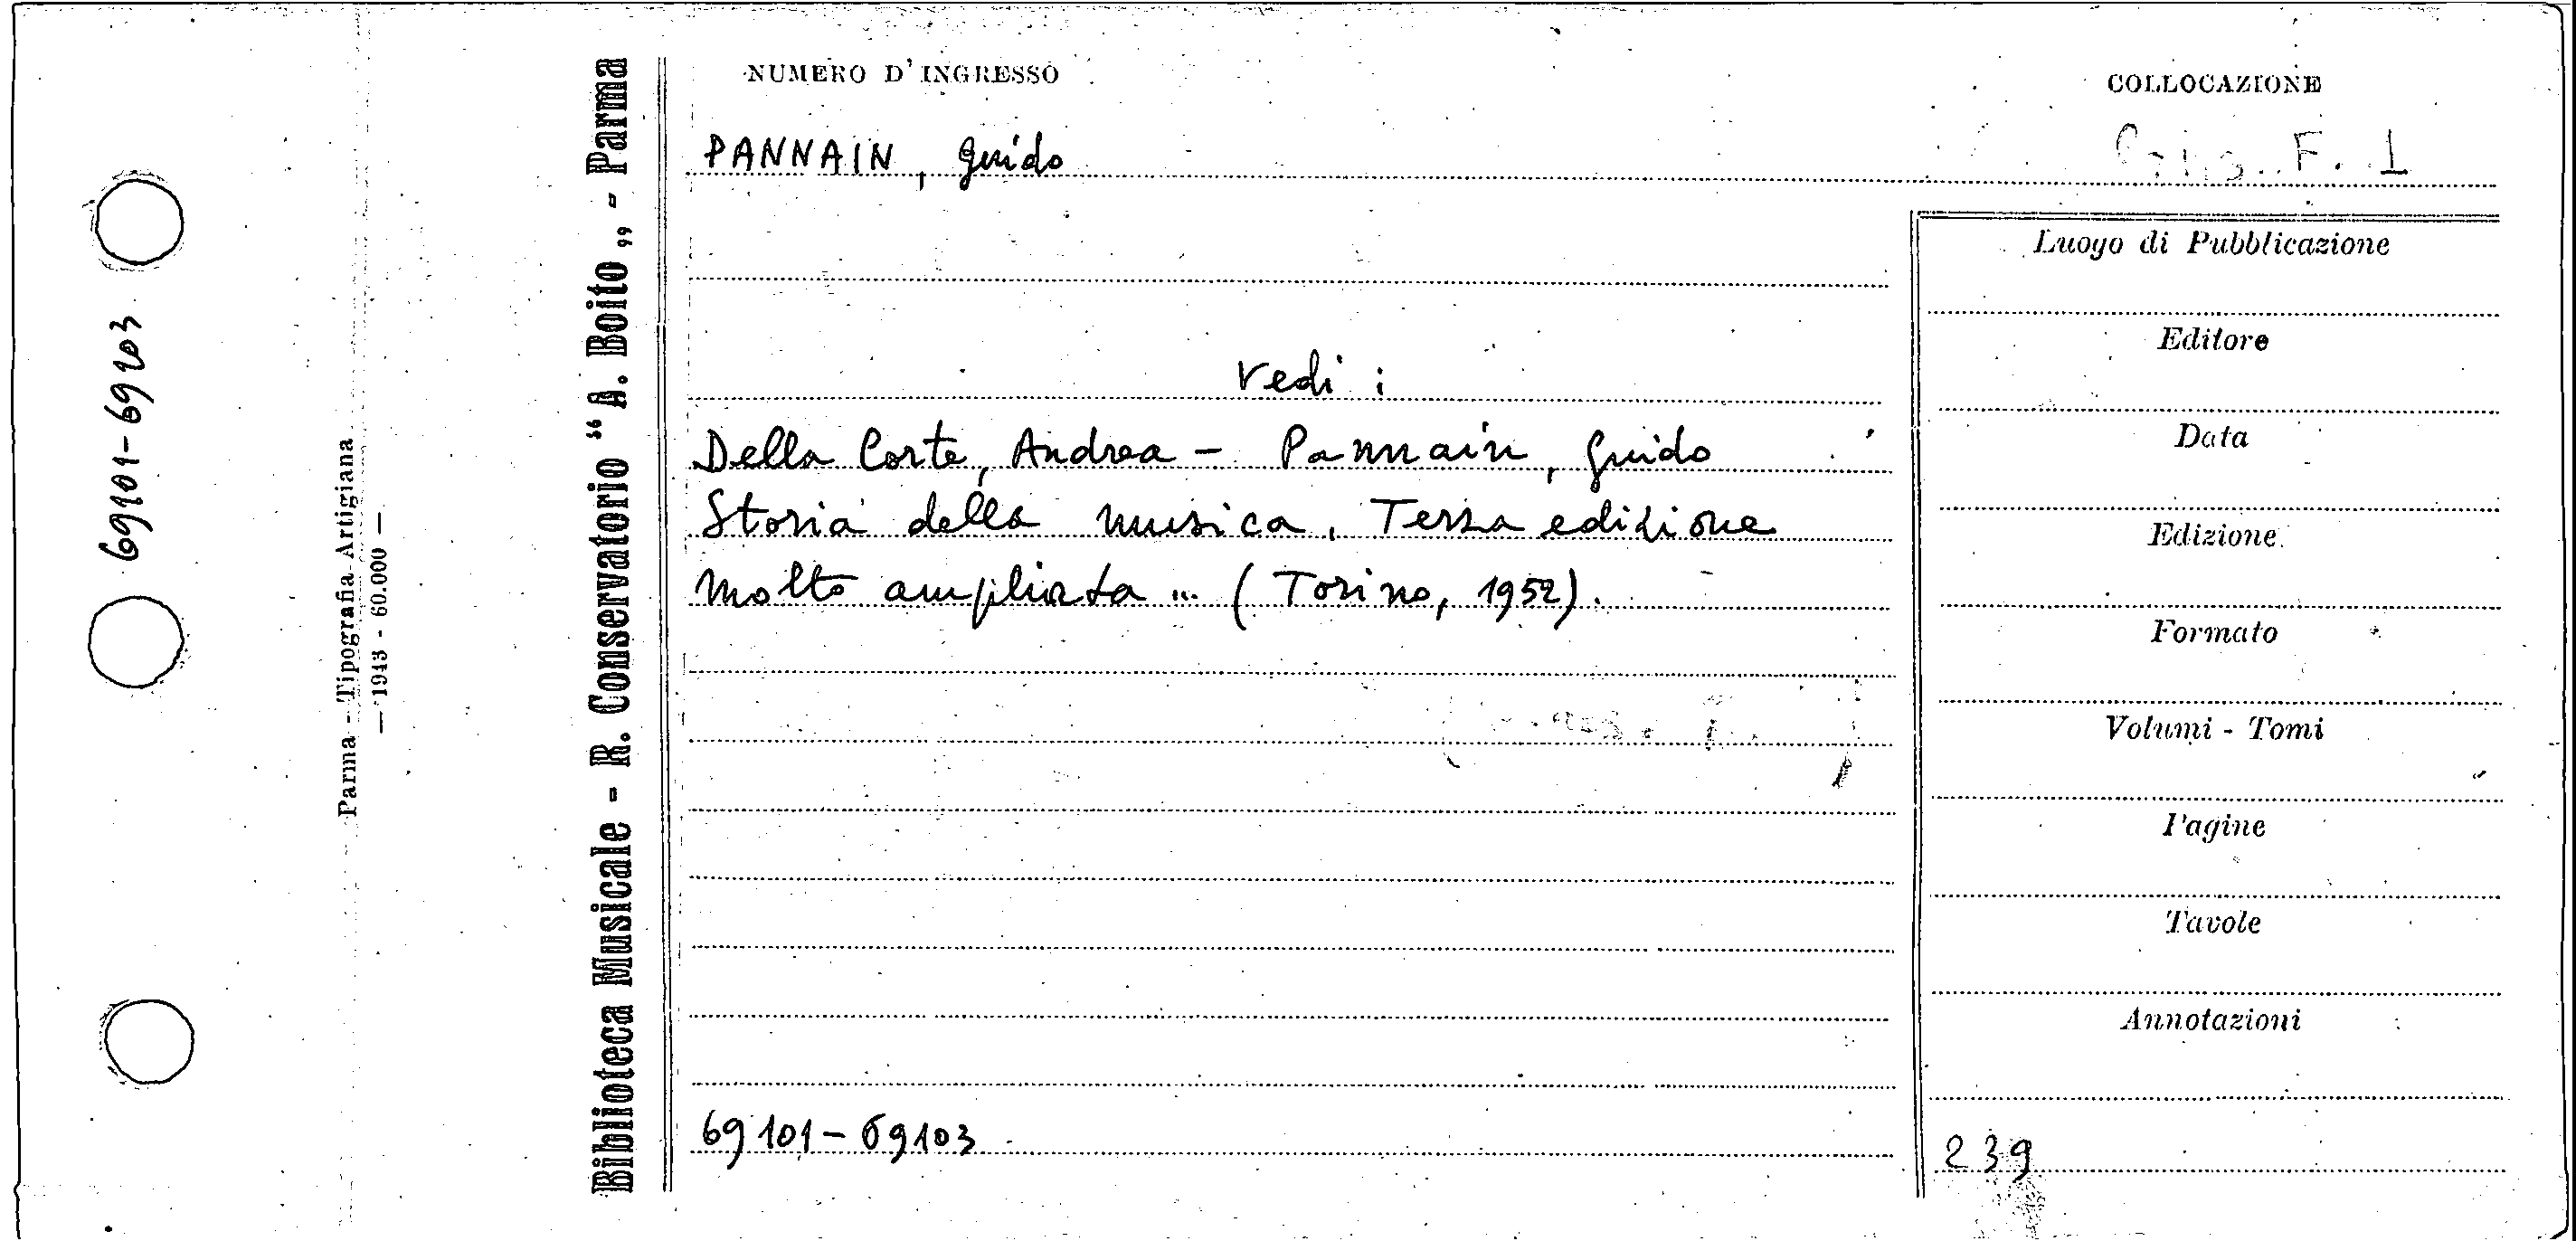 69101-69103
Parma - Tipografia Artigiana
— 1943 - 60.000 —
Biblioteca Musicale - R. Conservatorio “A. Boito„ - Parma
NUMERO D'INGRESSO
COLLOCAZIONE
F. 1
PANNAIN, Guido
Vedi:
Della Corte, Andrea - Pannain, Guido
Storia della musica. Terza edizione
molto ampliata ... (Torino, 1952).
69101-69103
Luogo di Pubblicazione
Editore
Data
Edizione
Formato
Volumi - Tomi
Pagine
Tavole
Annotazioni
239